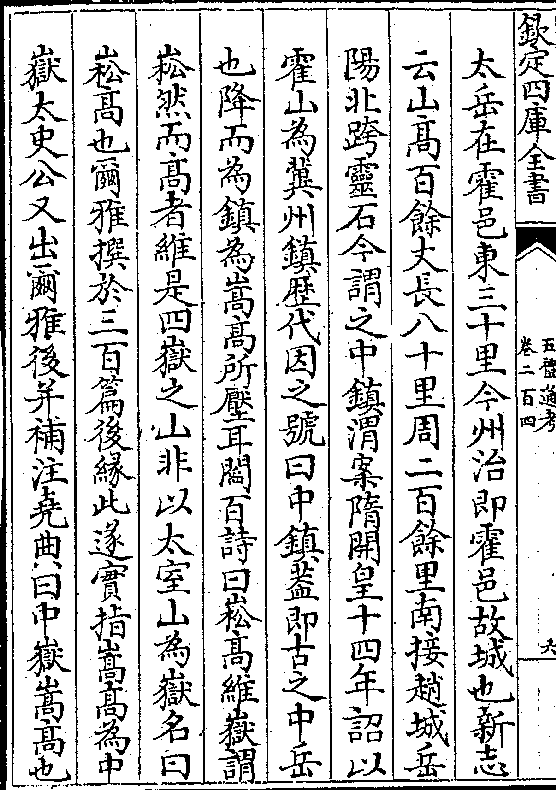 欽定四庫全書
五禮通考
卷二百四
六
太岳在霍邑東三十里今州治即霍邑故城也新志
云山髙百餘丈長八十里周二百餘里南接趙城岳
陽北跨靈石今謂之中鎮渭案隋開皇十四年詔以
霍山為冀州鎮歴代因之號曰中鎮葢即古之中岳
也降而為鎮為嵩髙所壓耳閻百詩曰崧髙維嶽謂
崧然而髙者維是四嶽之山非以太室山為嶽名曰
崧髙也爾雅撰於三百篇後縁此遂實指嵩髙為中
嶽太史公又出爾雅後并補注堯典曰中嶽嵩髙也